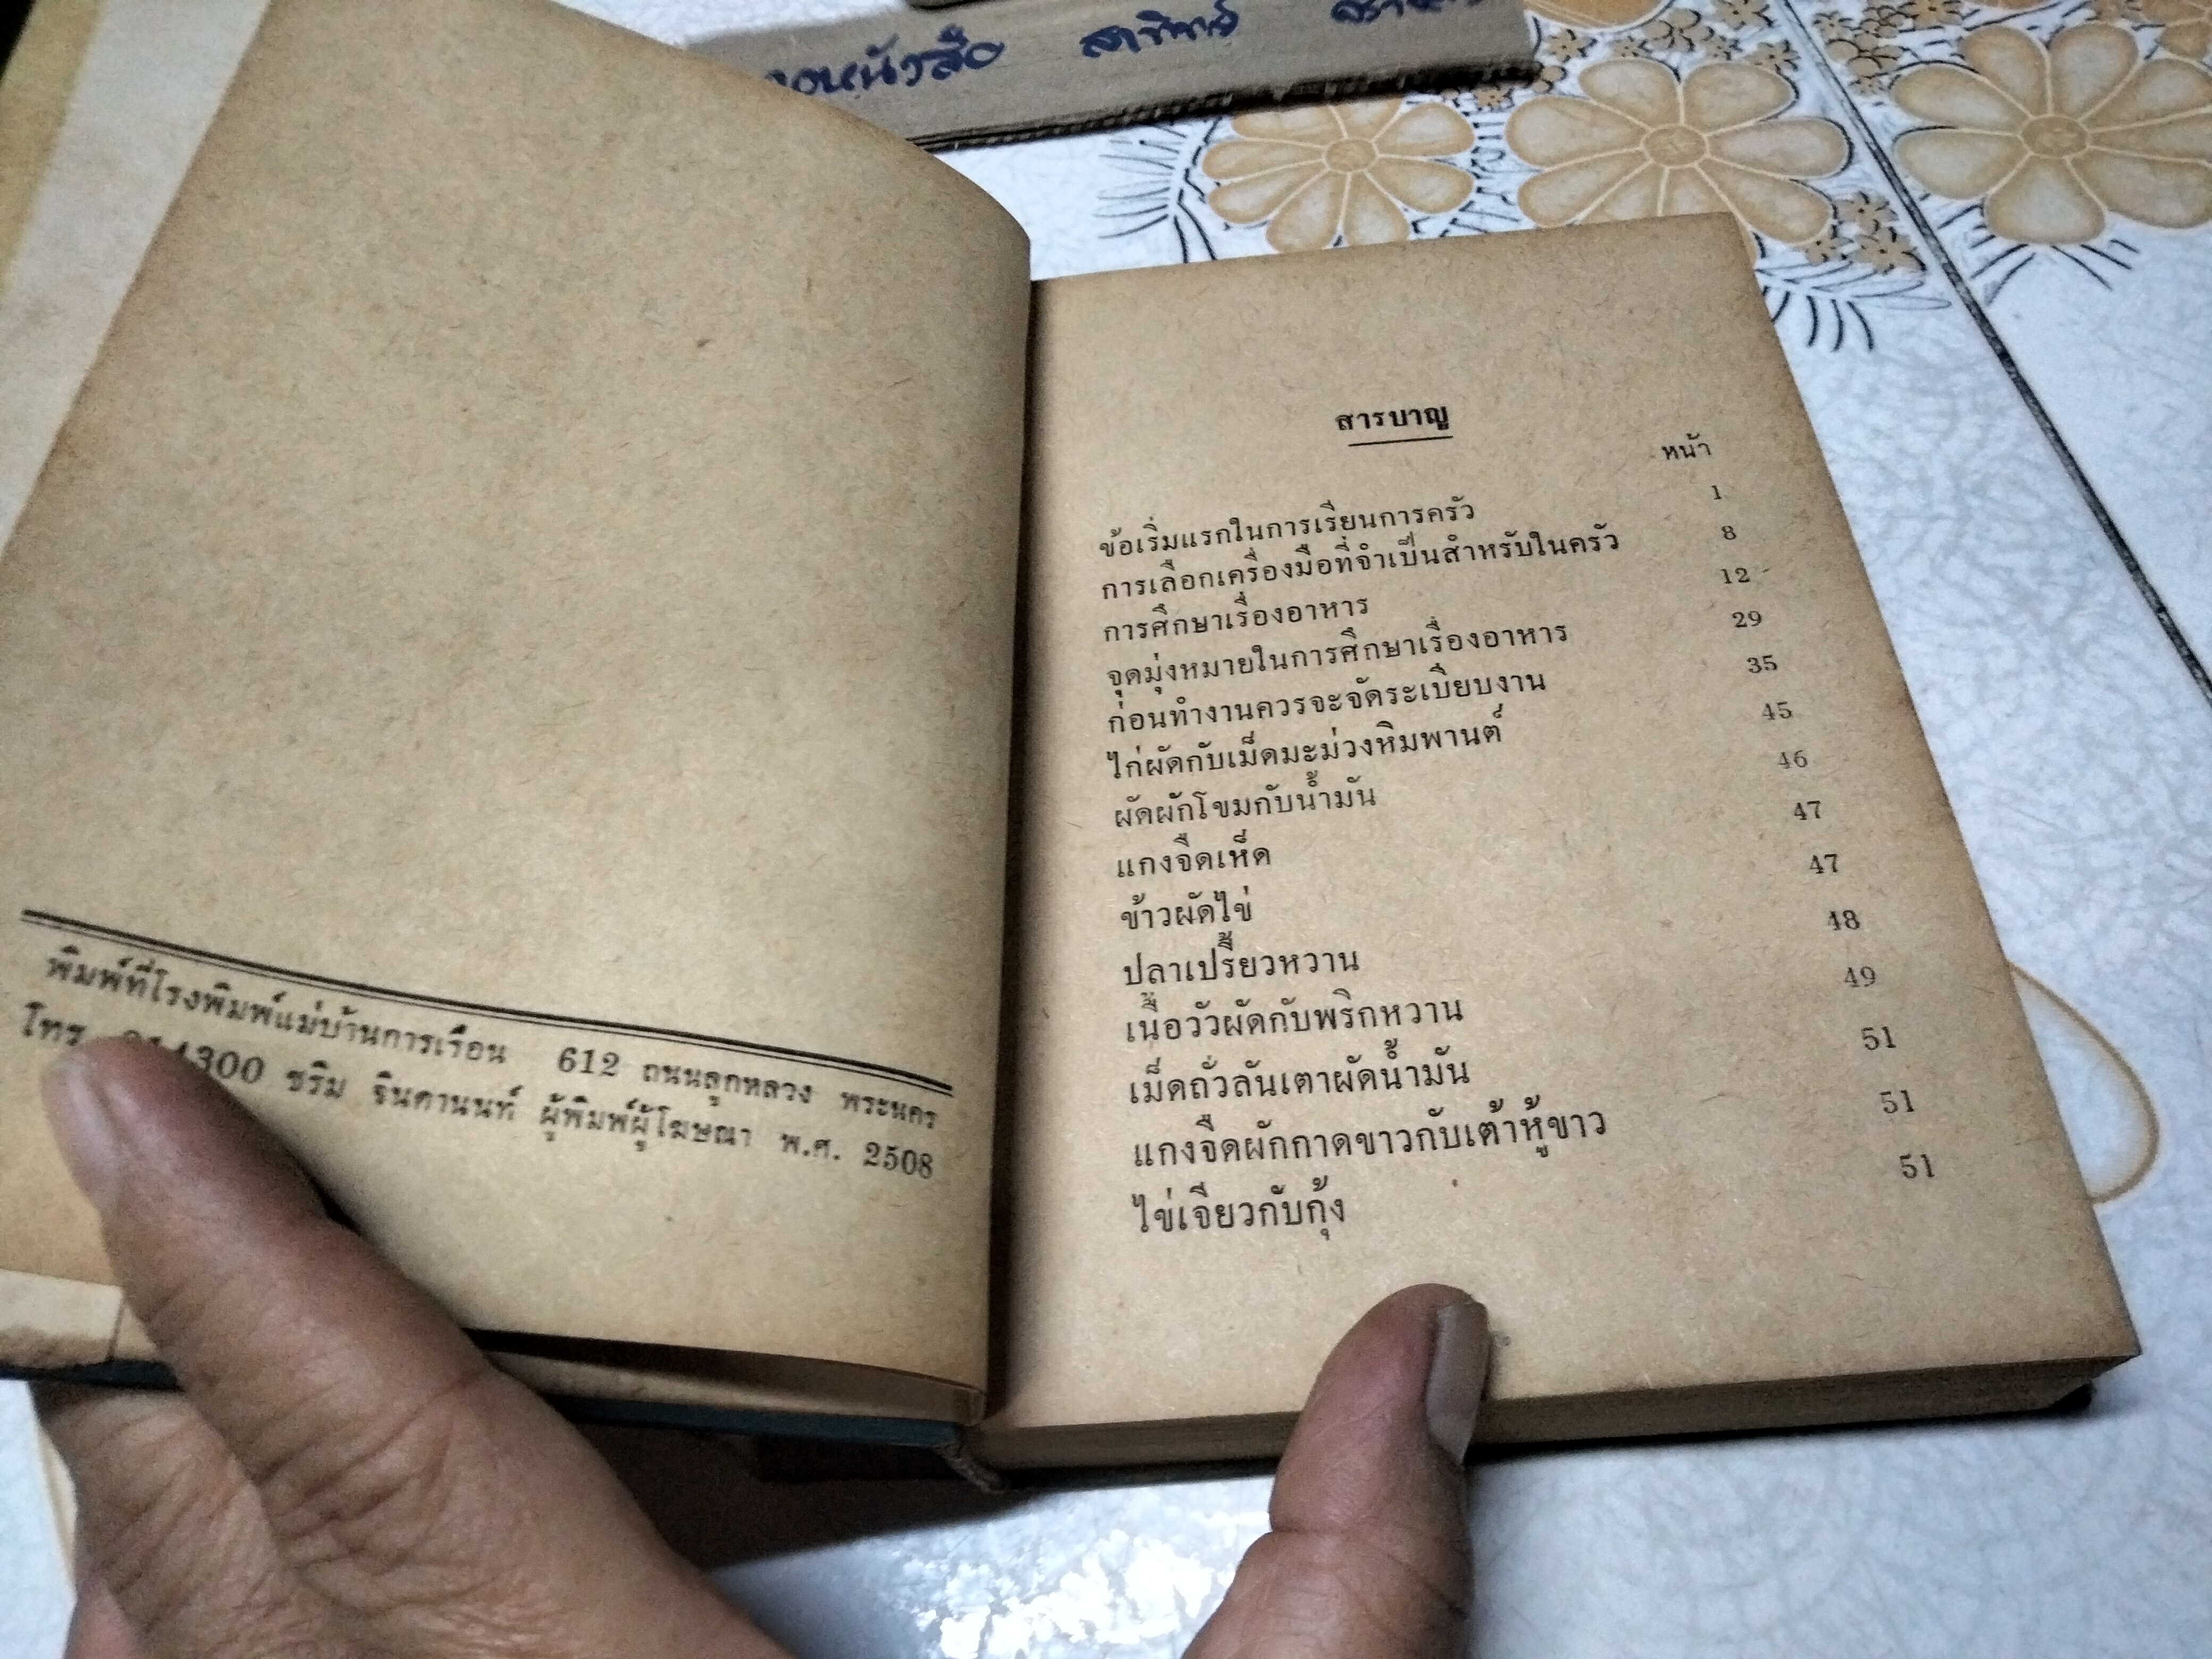 สารบาญ
หน้า
ข้อเริ่มแรกในการเรียนการครัว 1
การเลือกเครื่องมือที่จำเป็นสำหรับในครัว 8
การศึกษาเรื่องอาหาร 12
จุดมุ่งหมายในการศึกษาเรื่องอาหาร 29
ก่อนทำงานควรจะจัดระเบียบงาน 35
ไก่ผัดกับเม็ดมะม่วงหิมพานต์ 45
ผัดผักโขมกับน้ำมัน 46
แกงจืดเห็ด 47
ข้าวผัดไข่ 47
ปลาเปรี้ยวหวาน 48
เนื้อวัวผัดกับพริกหวาน 49
เม็ดถั่วลันเตาผัดน้ำมัน 51
แกงจืดผักกาดขาวกับเต้าหู้ขาว 51
ไข่เจียวกับกุ้ง 51
พิมพ์ที่โรงพิมพ์แม่บ้านการเรือน 612 ถนนลูกหลวง พระนคร
โทร. ชริม จินดานนท์ ผู้พิมพ์ผู้โฆษณา พ.ศ. 2508